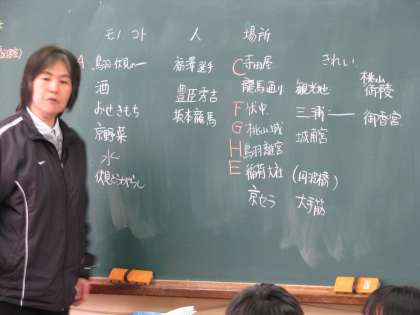 モノ コト 人 場所
A 鳥羽伏見の一 福澤選手 C 寺田屋 きれい
酒 豊臣秀吉 龍馬通り 観光地 桃山御陵
おせきもち 坂本龍馬 F 伏中 三 御香宮
京野菜 G 桃山城 城南宮
水 H 鳥羽離宮
伏見とうがらし E 稲荷大社 (丹波橋)
京セラ 大手筋